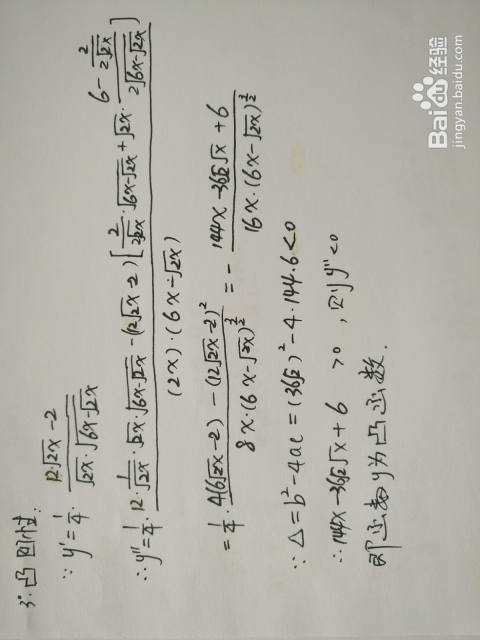 3°.凸凹性.
∵ y' = 1/4 · (12√2x - 2)/(√2x · √(6x-√2x))
∴ y'' = 1/4 · (12 · 1/√2x · √2x · √(6x-√2x) - (12√2x - 2)[2/(2√2x) · √(6x-√2x) + √2x · (6 - 2/(2√2x))/(2√(6x-√2x))])/((2x)·(6x-√2x))
= 1/4 · (4(6√2x - 2) - (12√2x - 2)²)/(8x·(6x-√2x)^(3/2)) = - (144x - 36√2√x + 6)/(16x·(6x-√2x)^(3/2))
∵ △ = b² - 4ac = (36√2)² - 4·144·6 < 0
∴ 144x - 36√2√x + 6 > 0, 则 y'' < 0
即函数y为凸函数.
Baidu 经验
jingyan.baidu.com